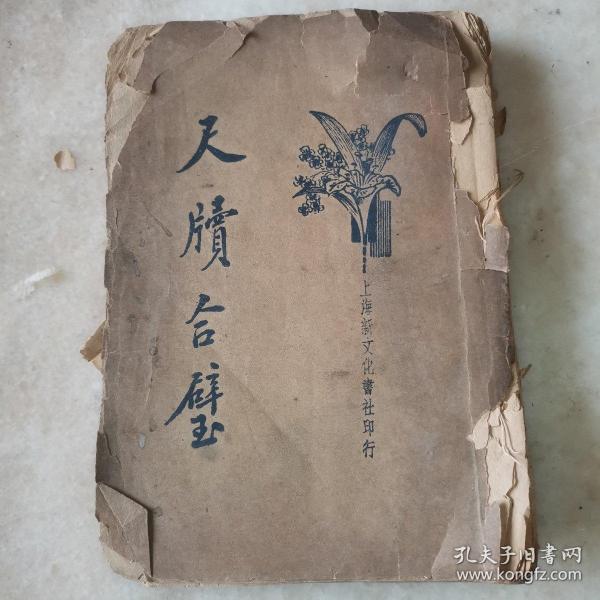 尺牘合璧
上海新文化書社印行
孔夫子旧書网
www.kongfz.com